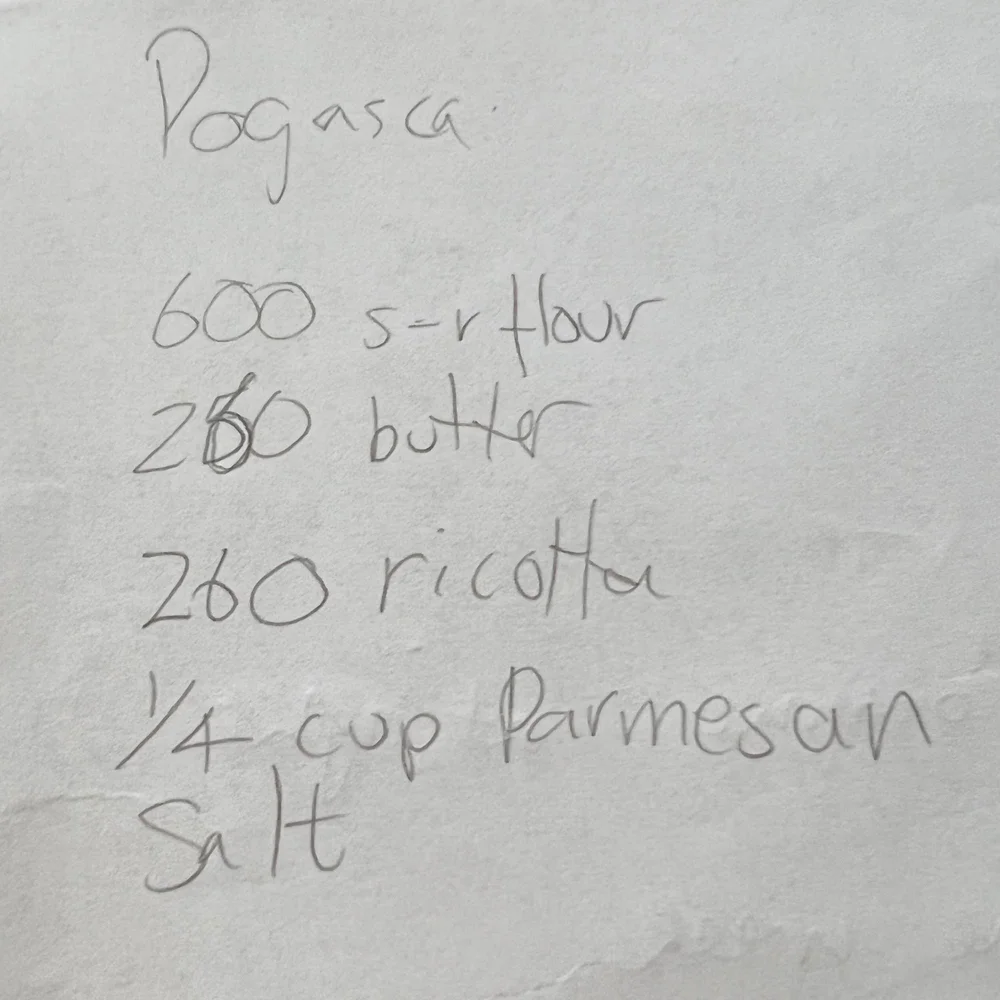 Pogasca.
600 s-r flour
260 butter
260 ricotta
1/4 cup Parmesan
Salt